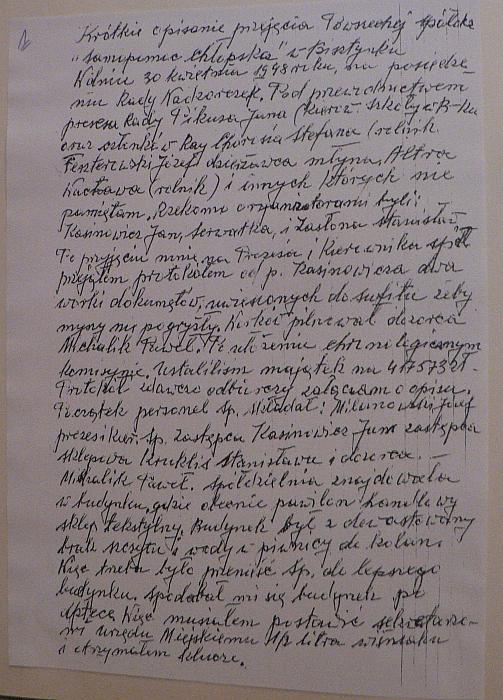 Krótkie opisanie przejęcia Powszechnej spółdz.
"samopomoc Chłopska" w Bisztynku
W dniu 30 kwietnia 1948 roku, na posiedze-
niu Rady Nadzorczej. Pod przewodnictwem
prezesa Rady Pikusa Jana (kierow. szkoły w B-ku
oraz członków Rady Chorosia Stefana (rolnik
Józef dzierżawca młyna,
Wacława (rolnik) i innych których nie
pamiętam. Rzekomo organizatorami byli:
Kasinowicz Jan, Serwatka, i Zasłona Stanisław
Po przyjęciu mnie, na Prezesa i kierownika spół
przejąłem protokołem od p. Kasinowicza dwa
worki dokumętów, uwieszonych do sufitu żeby
myszy nie pogryzły. Worków pilnował dozorca
Michalik Paweł. Po ułożeniu chronilogicznym
komisyjnie. Ustaliliśm majątek na 417573 zł -
Protokół zdawczo odbiorczy załączam o opisu.
Początek personel sp. składał: Milunowski Józef
prezes i kier. sp. zastępca Kasinowicz Jan zastępca
sklepowa Kruklis Stanisława i dozorca. -
Michalik Paweł. spółdzielnia znajdowała
w budynku, gdzie obecnie pawilon handlowy
sklep tekstylny. Budynek był zdewastowany
brak szczytu i wody w piwnicy do kolan.
Więc trzeba było przenieść sp. do lepszego
budynku. spodobał mi się budynek po
aptece Więc musiałem postawić sekretarzo-
wi urzędu Miejskiemu 1/2 litra wiśniaku
i otrzymałem klucze.